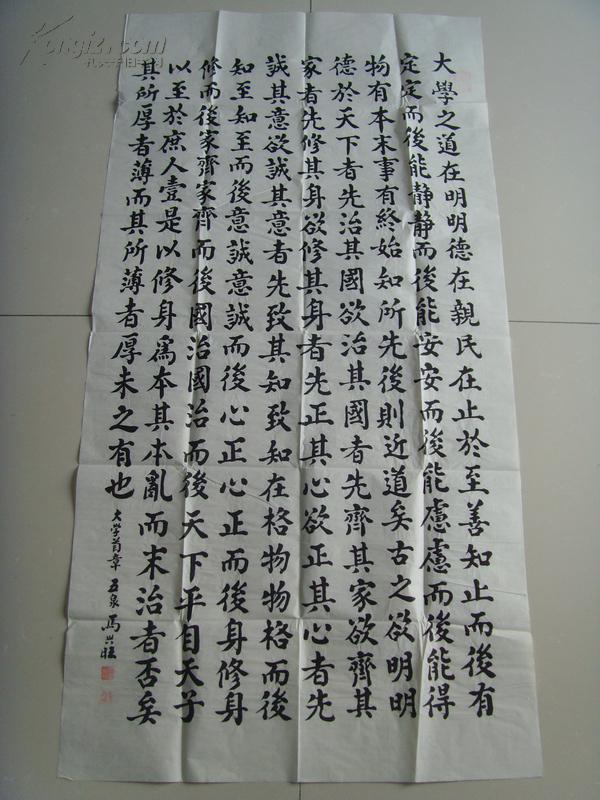 大學之道在明明德在親民在止於至善知止而後有
定定而後能静静而後能安安而後能慮慮而後能得
物有本末事有終始知所先後則近道矣古之欲明明
德於天下者先治其國欲治其國者先齊其家欲齊其
家者先修其身欲修其身者先正其心欲正其心者先
誠其意欲誠其意者先致其知致知在格物物格而後
知至知至而後意誠意誠而後心正心正而後身修身
修而後家齊家齊而後國治國治而後天下平自天子
以至於庶人壹是以修身爲本其本亂而末治者否矣
其所厚者薄而其所薄者厚未之有也
大学首章 五泉 馬兴旺